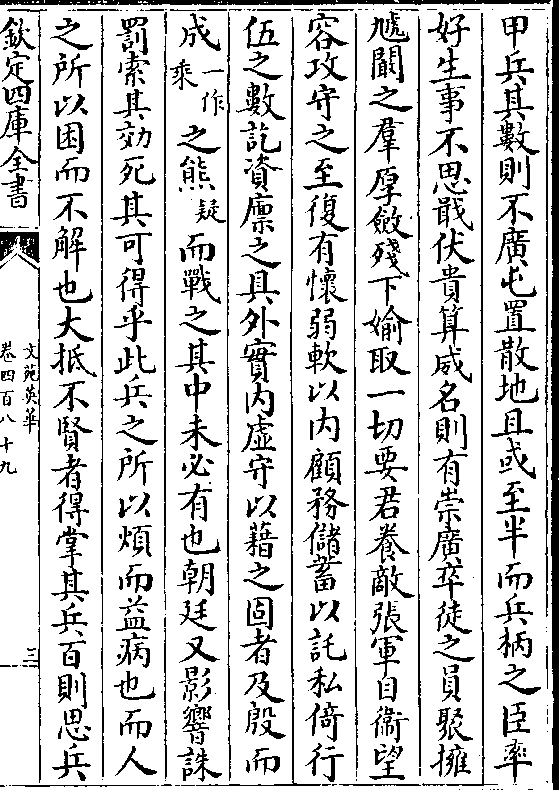 甲兵其數則不廣屯置散地且或至半而兵柄之臣率
好生事不思戢伏貴算威名則有崇廣卒徒之員聚擁
虓闞之羣厚斂殘下婾取一切要君養敵張軍自衞望
容攻守之至復有懷弱軟以内顧務儲蓄以託私倚行
伍之數訖資廪之具外實内虚守以藉之固者及殷而
成一作乘之熊疑而戰之其中未必有也朝廷又影響誅
罰索其効死其可得乎此兵之所以煩而益病也而人
之所以困而不解也大抵不賢者得掌其兵百則思兵
欽定四庫全書
文苑英華
卷四百八十九
三